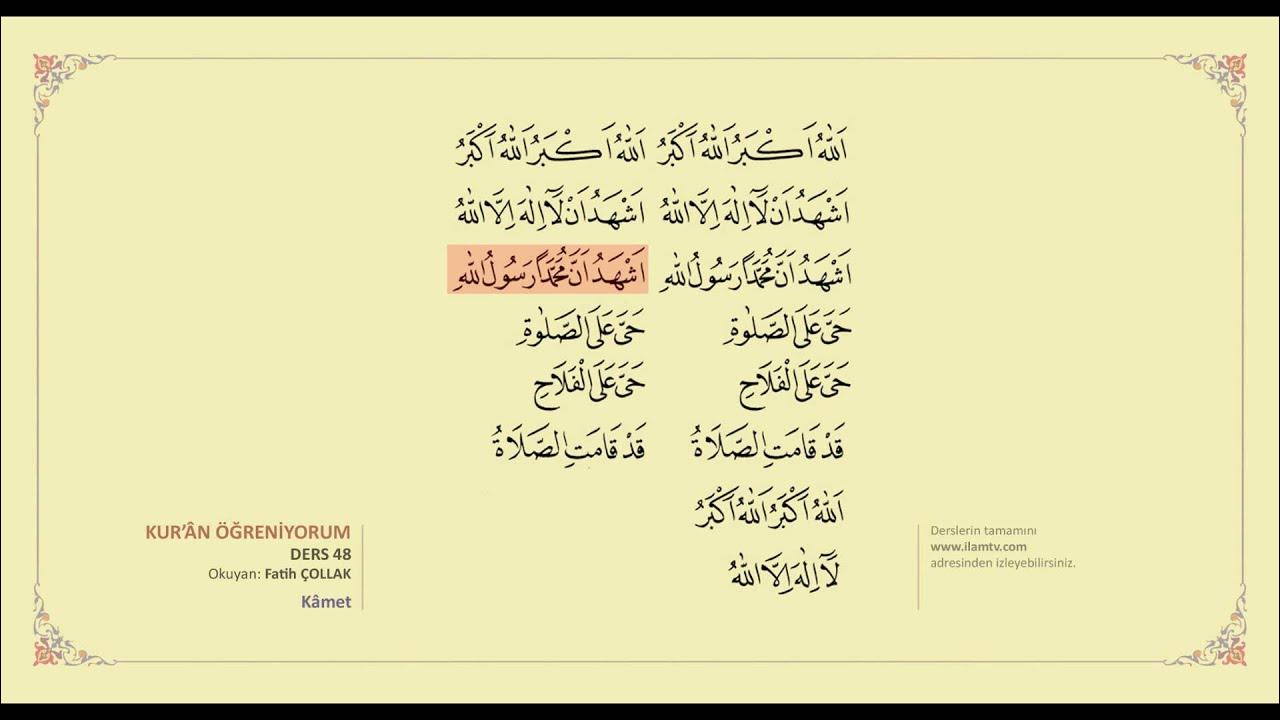 اَللّٰهُ اَكْبَرُ اَللّٰهُ اَكْبَرُ اَللّٰهُ اَكْبَرُ اَللّٰهُ اَكْبَرُ
اَشْهَدُ اَنْ لَٓا اِلٰهَ اِلَّا اللّٰهُ اَشْهَدُ اَنْ لَٓا اِلٰهَ اِلَّا اللّٰهُ
اَشْهَدُ اَنَّ مُحَمَّدًا رَسُولُ اللّٰهِ اَشْهَدُ اَنَّ مُحَمَّدًا رَسُولُ اللّٰهِ
حَیَّ عَلَى الصَّلٰوةِ حَیَّ عَلَى الصَّلٰوةِ
حَیَّ عَلَى الْفَلَاحِ حَیَّ عَلَى الْفَلَاحِ
قَدْ قَامَتِ الصَّلَاةُ قَدْ قَامَتِ الصَّلَاةُ
اَللّٰهُ اَكْبَرُ اَللّٰهُ اَكْبَرُ
لَٓا اِلٰهَ اِلَّا اللّٰهُ
KUR’ÂN ÖĞRENİYORUM
DERS 48
Okuyan: Fatih ÇOLLAK
Kâmet
Derslerin tamamını
www.ilamtv.com
adresinden izleyebilirsiniz.